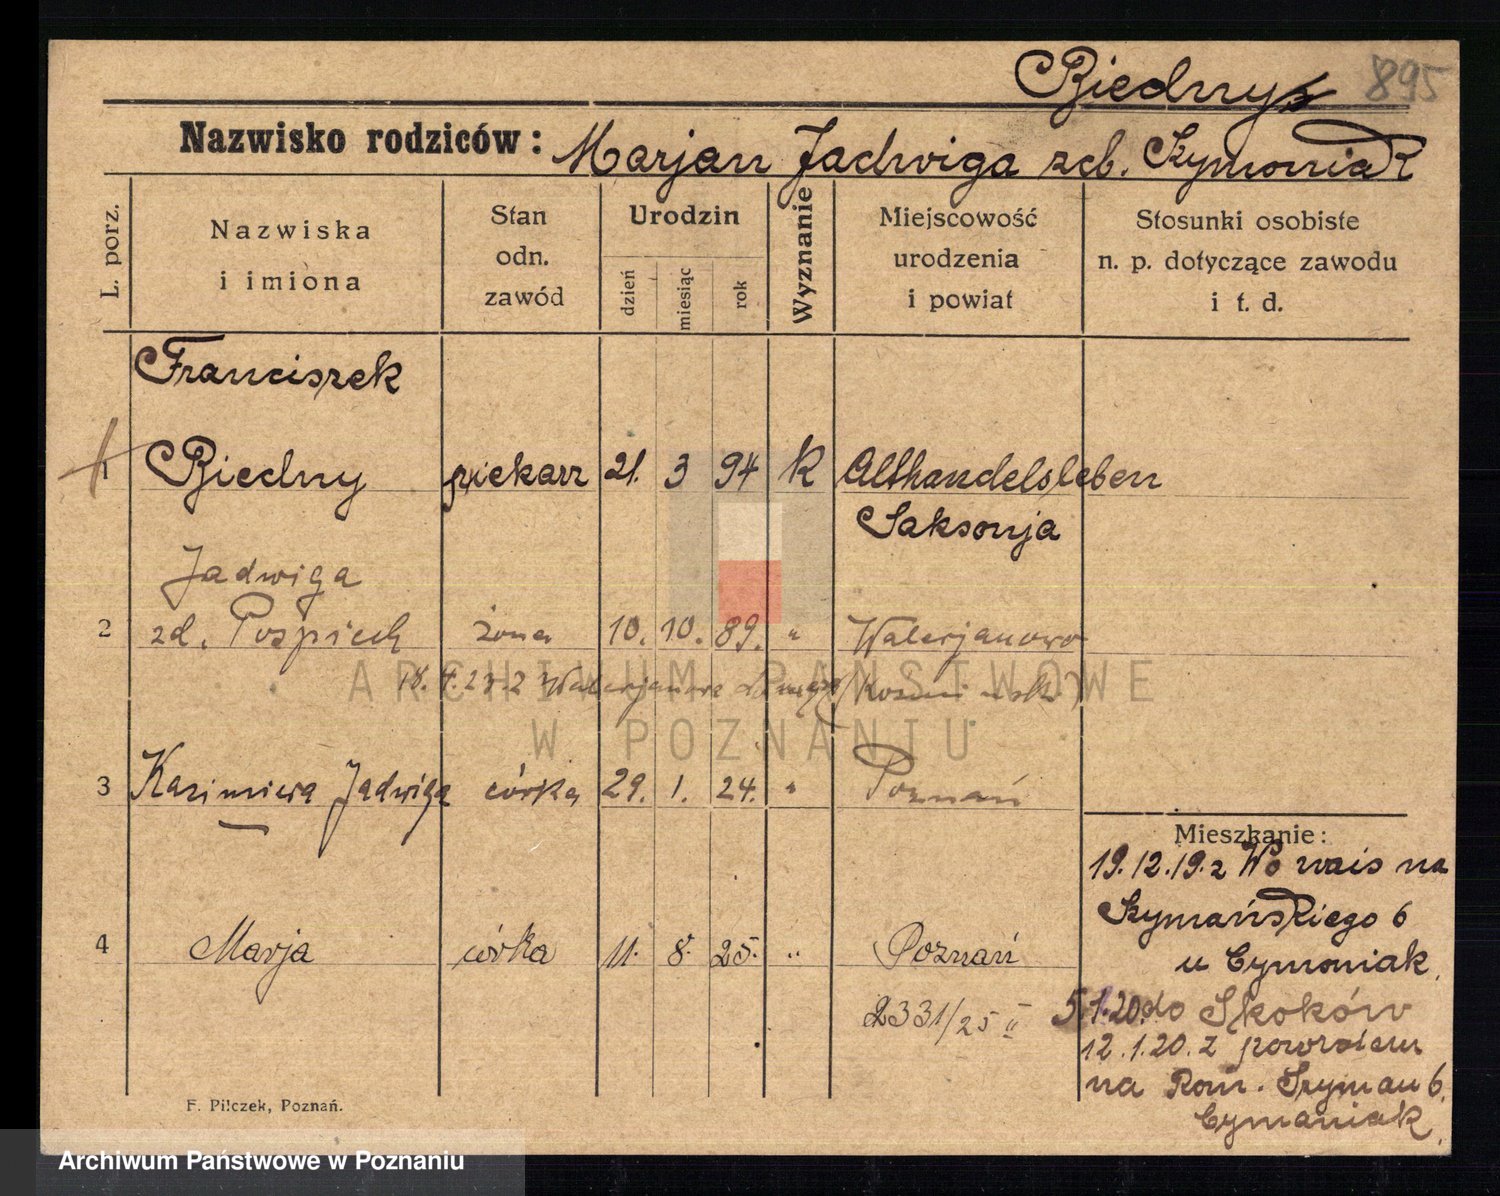 Biedny 895
Nazwisko rodziców: Marjan Jadwiga zeb. Szymoniak
L. porz.
Nazwiska
i imiona
Stan
odn.
zawód
Urodzin
dzień
miesiąc
rok
Wyznanie
Miejscowość
urodzenia
i powiat
Stosunki osobiste
n. p. dotyczące zawodu
i t. d.
Franciszek
1 Biedny piekarz 21. 3 94 K Althandelsleben
Saksonja
Jadwiga
2 zd. Pospiech żona 10. 10. 89. " Walerjanowo
18. 4. 23 z Walerjanowo
ARCHIWUM PAŃSTWOWE
W POZNANIU
3 Kazimiera Jadwiga córka 29. 1. 24. " Poznań
4 Marja córka 11. 8. 25. " Poznań
2331/25 II
Mieszkanie:
19.12.19. z na
Szymańskiego 6
u Cymoniak
5.1.20. do Skoków
12.1.20. z powrotem
na Rom. Szyman 6.
Cymaniak.
F. Pilczek, Poznań.
Archiwum Państwowe w Poznaniu